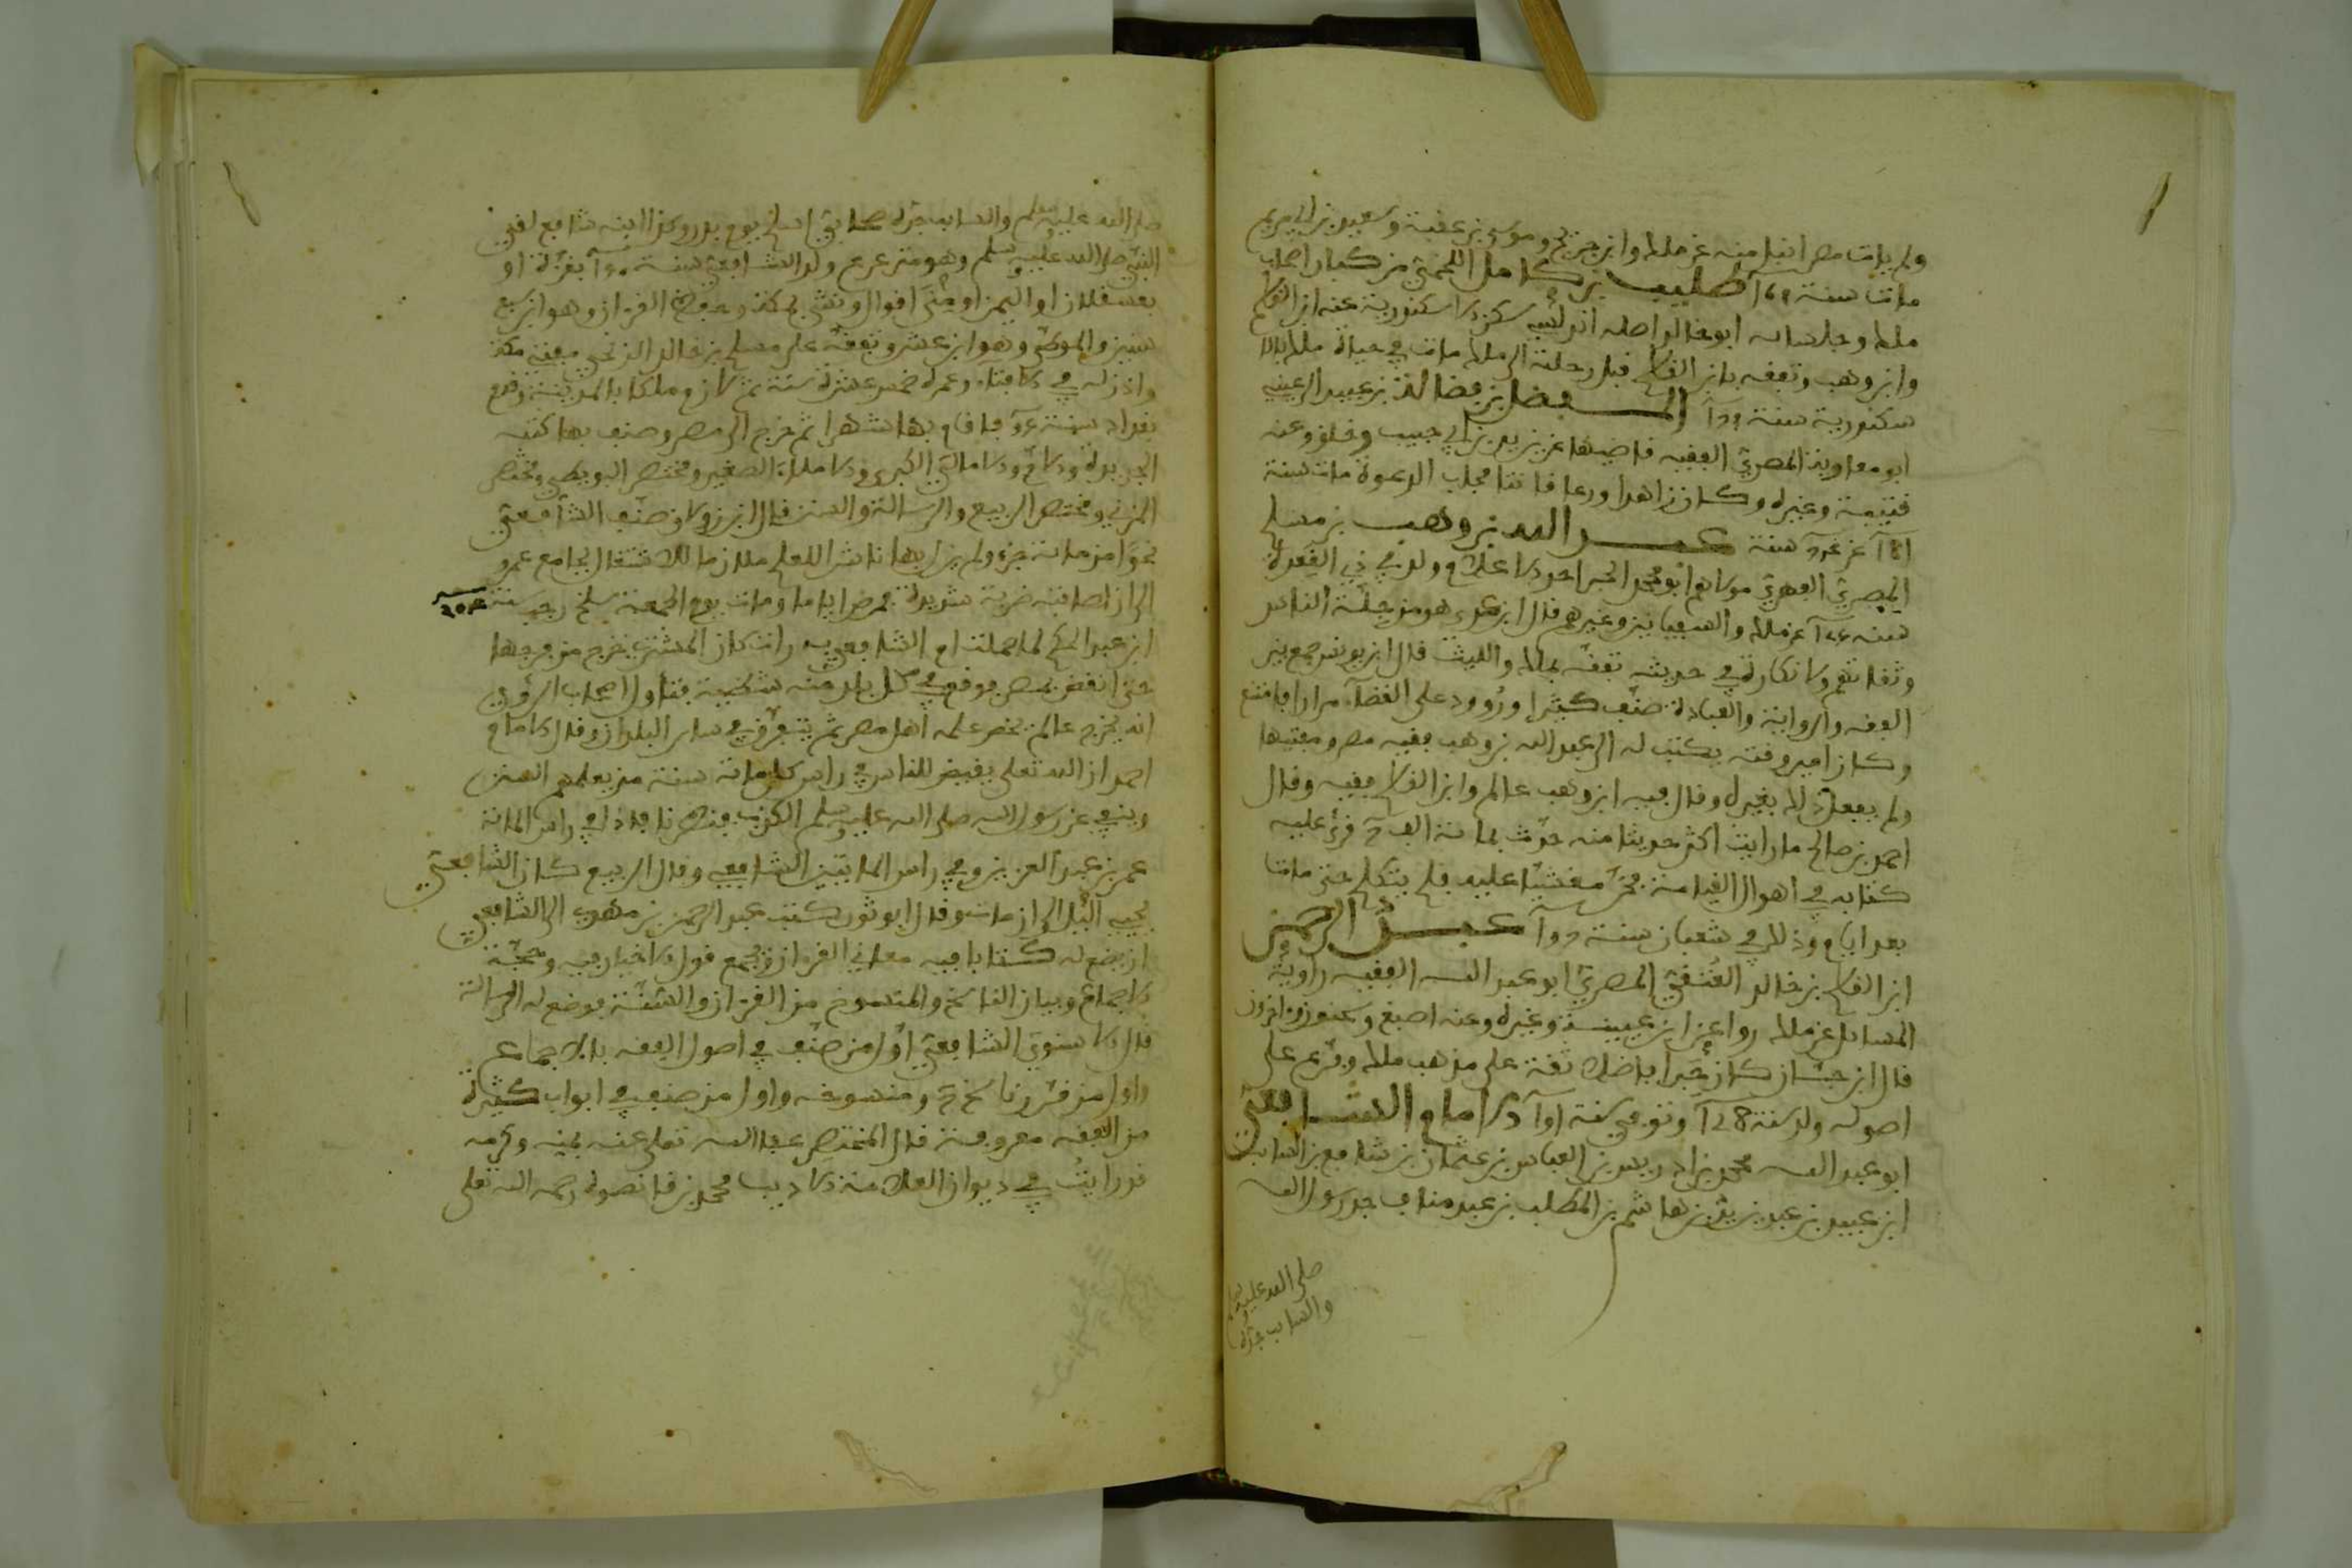 ولم يات مصر انبل منه عن ملك وابن جريج وموسى بن عقبة وسعيد بن ابي مريم
مات سنة طليب بن كامل اللخمي من كبار اصحاب
ملك وجلسائه ابو خالد اصله اندلسي سكن الاسكندرية عنه ابن القاسم
وابن وهب وتفقه بابن القاسم قبل رحلته الى ملك مات في حياة ملك بالا
سكندرية سنة المفضل بن فضالة بن عبيد الرعيني
ابو معاوية المصري الفقيه قاضيها عن يزيد بن ابي حبيب وخلق وعنه
قتيبة وغيره وكان زاهدا ورعا قانتا مجاب الدعوة مات سنة
عن سنة عبد الله بن وهب بن مسلم
المصري الفهري مولاهم ابو محمد الحبر احد الاعلام ولد في ذي القعدة
سنة عن ملك والسفيانين وغيرهم قال ابن عدي هو من جلة الناس
وثقاتهم ولا نكارة في حديثه تفقه بملك والليث قال ابن يونس جمع بين
الفقه والرواية والعبادة صنف كثيرا ورُوود على القضاء مرارا فامتنع
وكان امير وقته يكتب له الى عبد الله بن وهب فقيه مصر ومفتيها
ولم يفعل ذلك بغيره وقال فيه ابن وهب عالم وابن القاسم فقيه وقال
احمد بن صالح ما رايت اكثر حديثا منه حدث بمائة الف قرئ عليه
كتابه في اهوال القيامة فخر مغشيا عليه فلم يتكلم حتى مات
بعد ايام وذلك في شعبان سنة عبد الرحمن
ابن القاسم بن خالد العُتقي المصري ابو عبد الله الفقيه راوية
المسائل عن ملك روا عن ابن عيينة وغيره وعنه اصبغ وسحنون واخرون
قال ابن حبان كان حبرا فاضلا تفقه على مذهب ملك وفرع على
اصوله ولد سنة وتوفي سنة الامام الشافعي
ابو عبد الله محمد بن ادريس بن العباس بن عثمان بن شافع بن السائب
ابن عبيد بن عبد يزيد بن هاشم بن المطلب بن عبد مناف جد رسول الله
صلى الله عليه وسلم
والسائب جده
صلى الله عليه وسلم والسائب جده صحابي اسلم يوم بدر وكذا ابنه شافع لقي
النبي صلى الله عليه وسلم وهو مترعرع ولد الشافعي سنة بغزة او
بعسقلان او اليمن او مِنًى اقوال ونشئ بمكة وحفظ القرءان وهو ابن سبع
سنين والموطئ وهو ابن عشر وتفقه على مسلم بن خالد الزنجي مفتي مكة
واذن له في الافتاء وعمره خمس عشرة سنة ثم لازم ملكا بالمدينة وقدم
بغداد سنة فاقام بها شهرا ثم خرج الى مصر وصنف بها كتبه
الجديدة والام والامالي الكبرى والاملاء الصغير ومختصر البويطي ومختصر
المزني ومختصر الربيع والرسالة والسنن قال ابن زولاق صنف الشافعي
نحوًا من مائة جزء ولم يزل بها ناشرا للعلم ملازما للاشتغال بجامع عمرو
الى ان اصابته ضربة شديدة فمرض اياما ومات يوم الجمعة سلخ رجب سنة ٢٠٤
ابن عبد الحكم لما حملت ام الشافعي به رات كان المشتري خرج من فرجها
حتى انقض بمصر فوقع في كل بلد منه شظية فتاول اصحاب الرؤيا
انه يخرج عالم يخص علمه اهل مصر ثم يتفرق في سائر البلدان وقال الامام
احمد ان الله تعلى يقيض للناس في راس كل مائة سنة من يعلمهم السنن
وينفي عن رسول الله صلى الله عليه وسلم الكذب فنظرنا فاذا في راس المائة
عمر بن عبد العزيز وفي راس المايتين الشافعي وقال الربيع كان الشافعي
يحيي الليل الى ان مات وقال ابو ثور كتب عبد الرحمن بن مهدي الى الشافعي
ان يضع له كتابا فيه معاني القرءان ويجمع قول الاخبار فيه وحجة
الاجماع وبيان الناسخ والمنسوخ من القرءان والسنة فوضع له الرسالة
قال الاسنوي الشافعي اول من صنف في اصول الفقه بالاجماع
واول من قرر ناسخ ومنسوخه واول من صنف في ابواب كثيرة
من الفقه معروفة قال المختصر عفا الله تعلى عنه بمنه وكرمه
قد رايتُ في ديوان العلامة الاديب محمد بن قانصوه رحمه الله تعلى